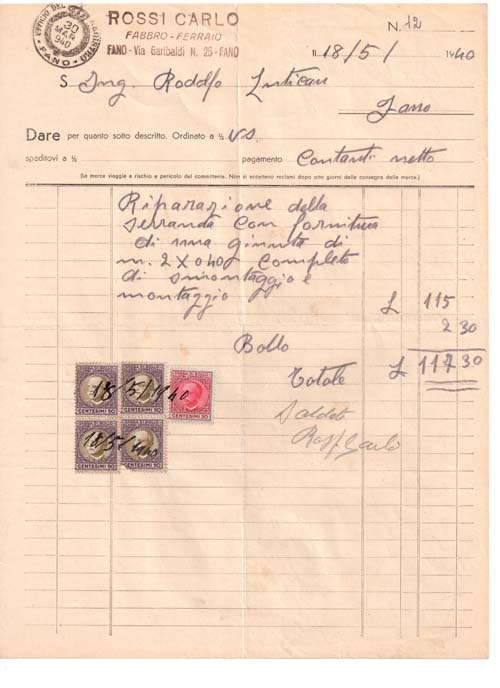 UFFICIO DEL REGISTRO
30 MAR 940
FANO
ROSSI CARLO
FABBRO-FERRAIO
FANO - Via Garibaldi N. 25 - FANO
N. 12
li 18/5/ 1940
S. Ing. Rodolfo
Fano
Dare per quanto sotto descritto. Ordinato a ½ VS.
speditovi a ½ pagamento Contanti netto
(La merce viaggia a rischio e pericolo del committente. Non si accettano reclami dopo otto giorni dalla consegna della merce.)
Riparazione della
serranda con fornitura
di una giunta di
m. 2 x 040 completo
di smontaggio e
montaggio £ 115
Bollo 2 30
Totale £ 117 30
18/5/1940
CENTESIMI 50
CENTESIMI 50
CENTESIMI 50
18/5/1940
CENTESIMI 50
CENTESIMI 50
Saldato
Rossi Carlo